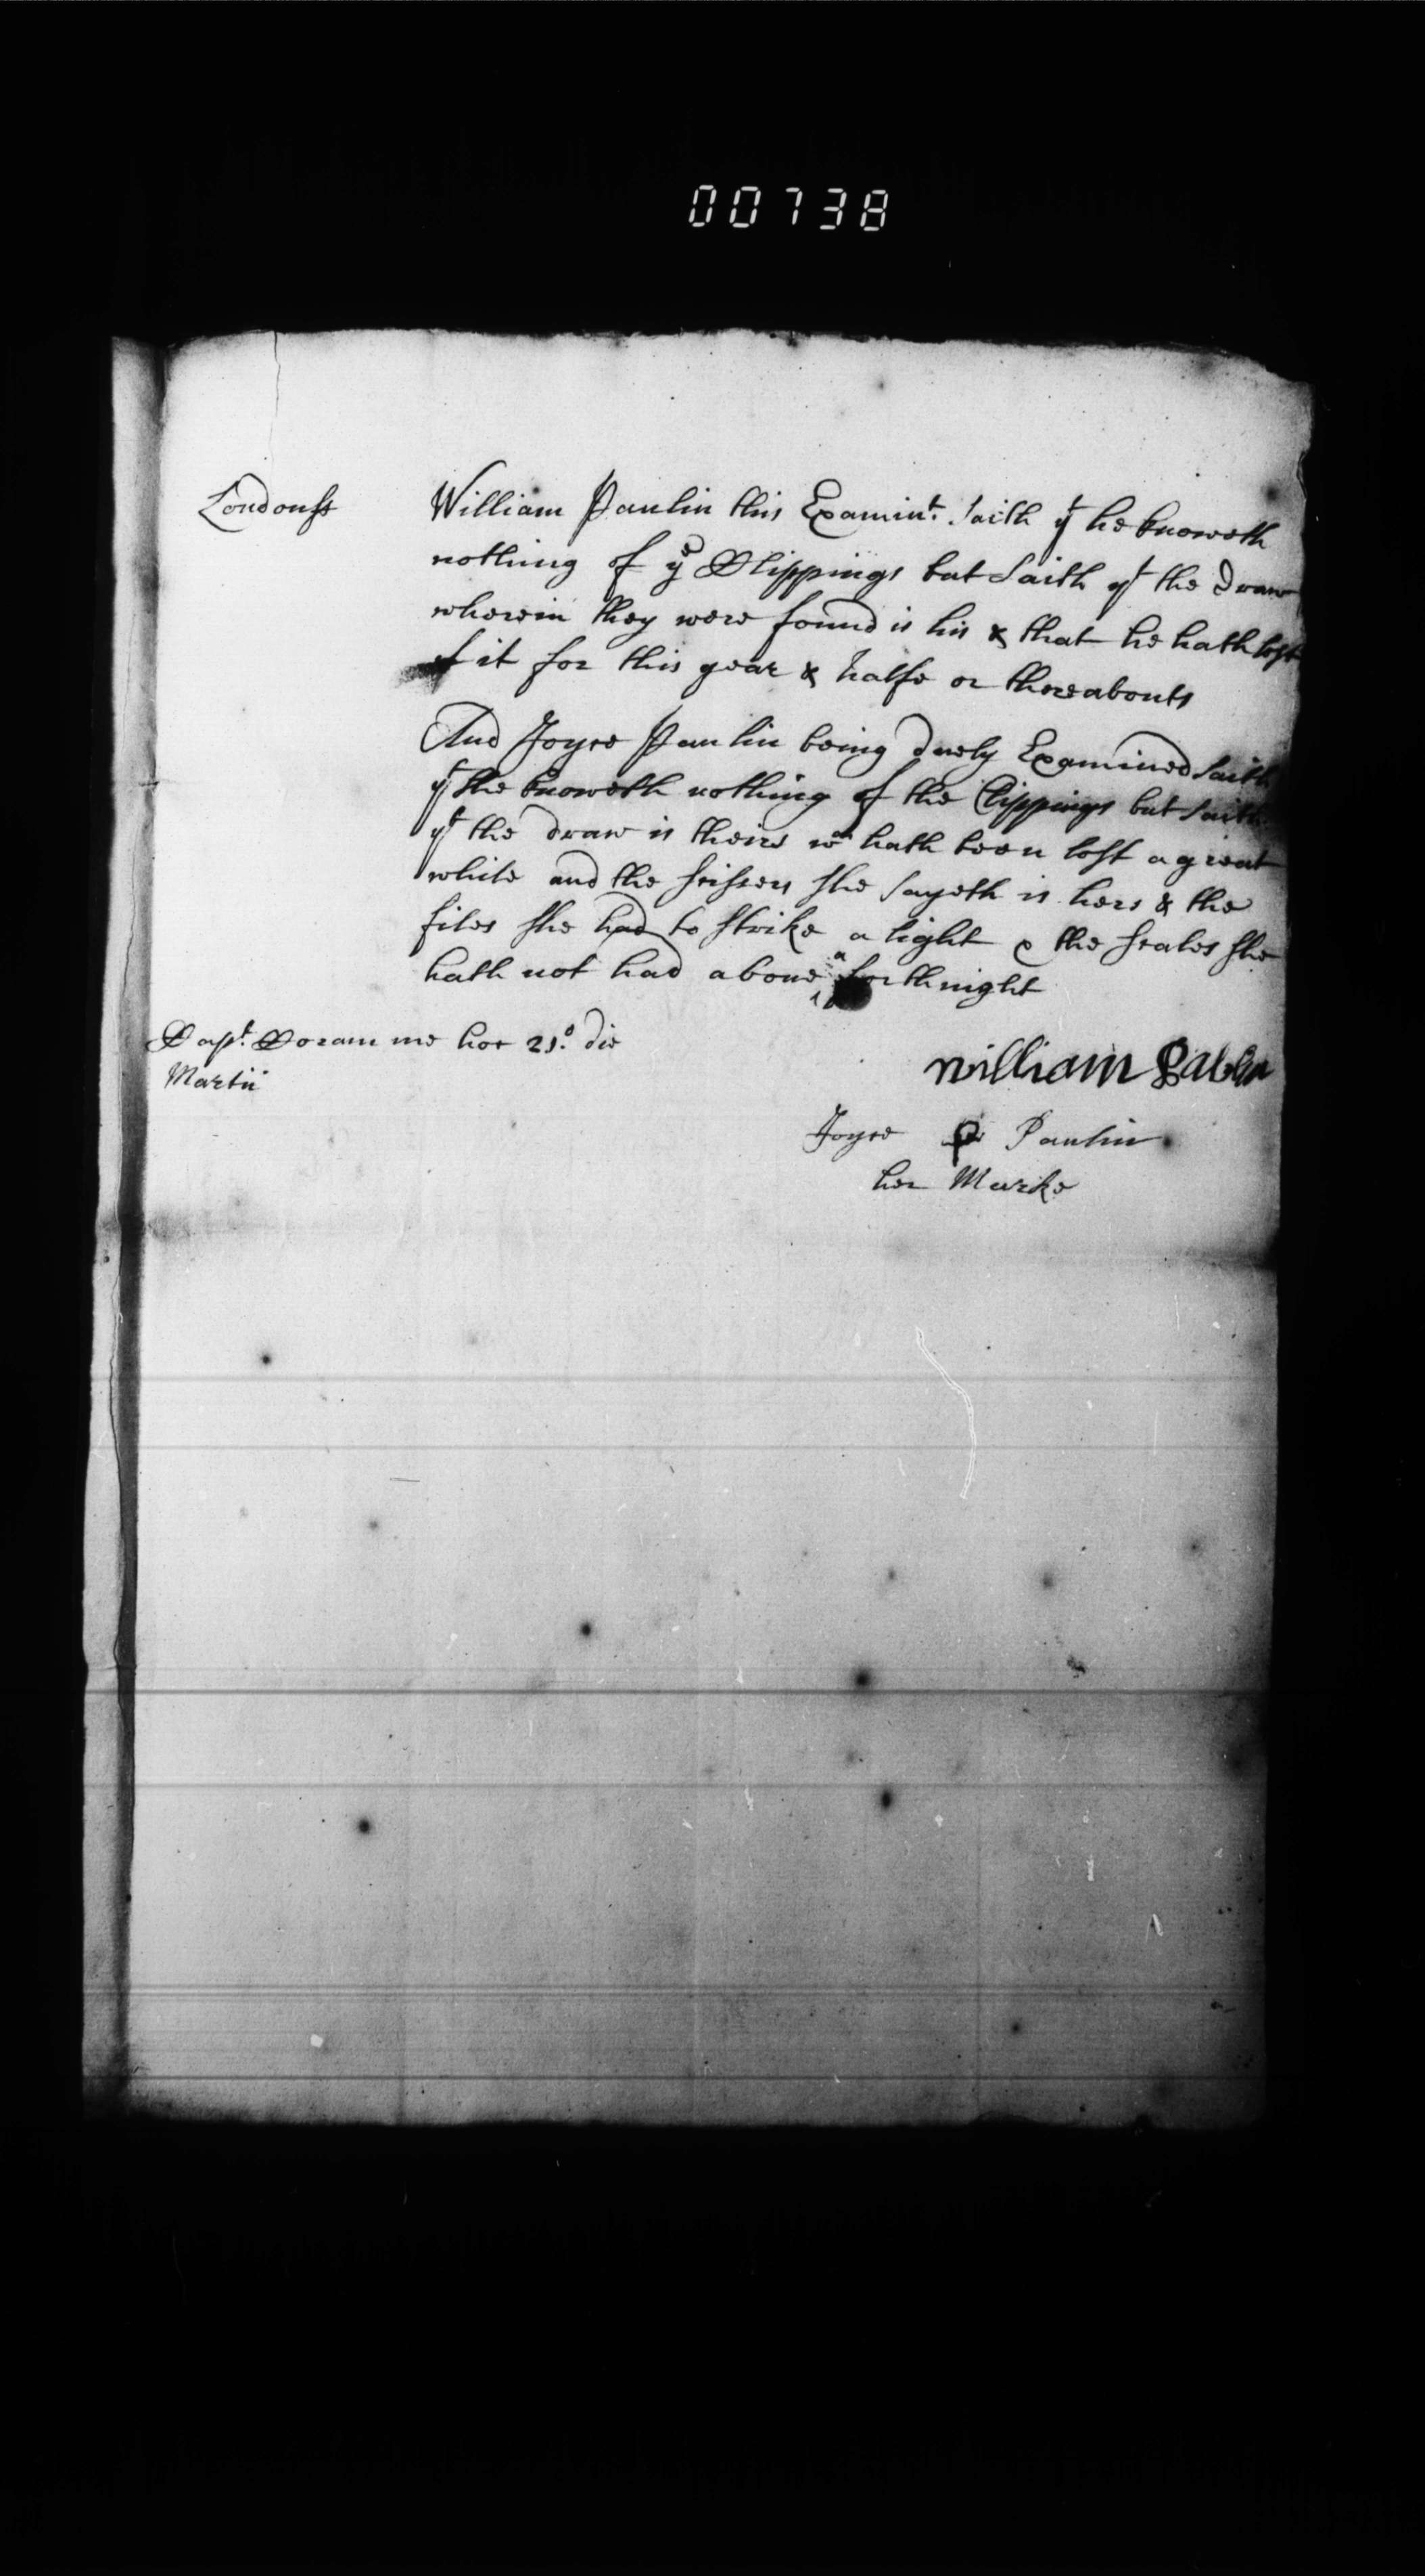 00738
Londonss William Paulin this Examint. saith yt he knoweth
nothing of ye Clippings but saith yt the draw
wherein they were found is his & that he hath lost
of it for this year & halfe or thereabouts
And Joyce Paulin being duely Examined saith
yt she knoweth nothing of the Clippings but saith
yt the draw is theirs wch hath been lost a great
while and the scissers she sayeth is hers & the
files she had to strike a light & the scales she
hath not had above a forthnight
Capt. Coram me hoc 21o. die
Martii
william Pablin
Joyce P Paulin
her Marke